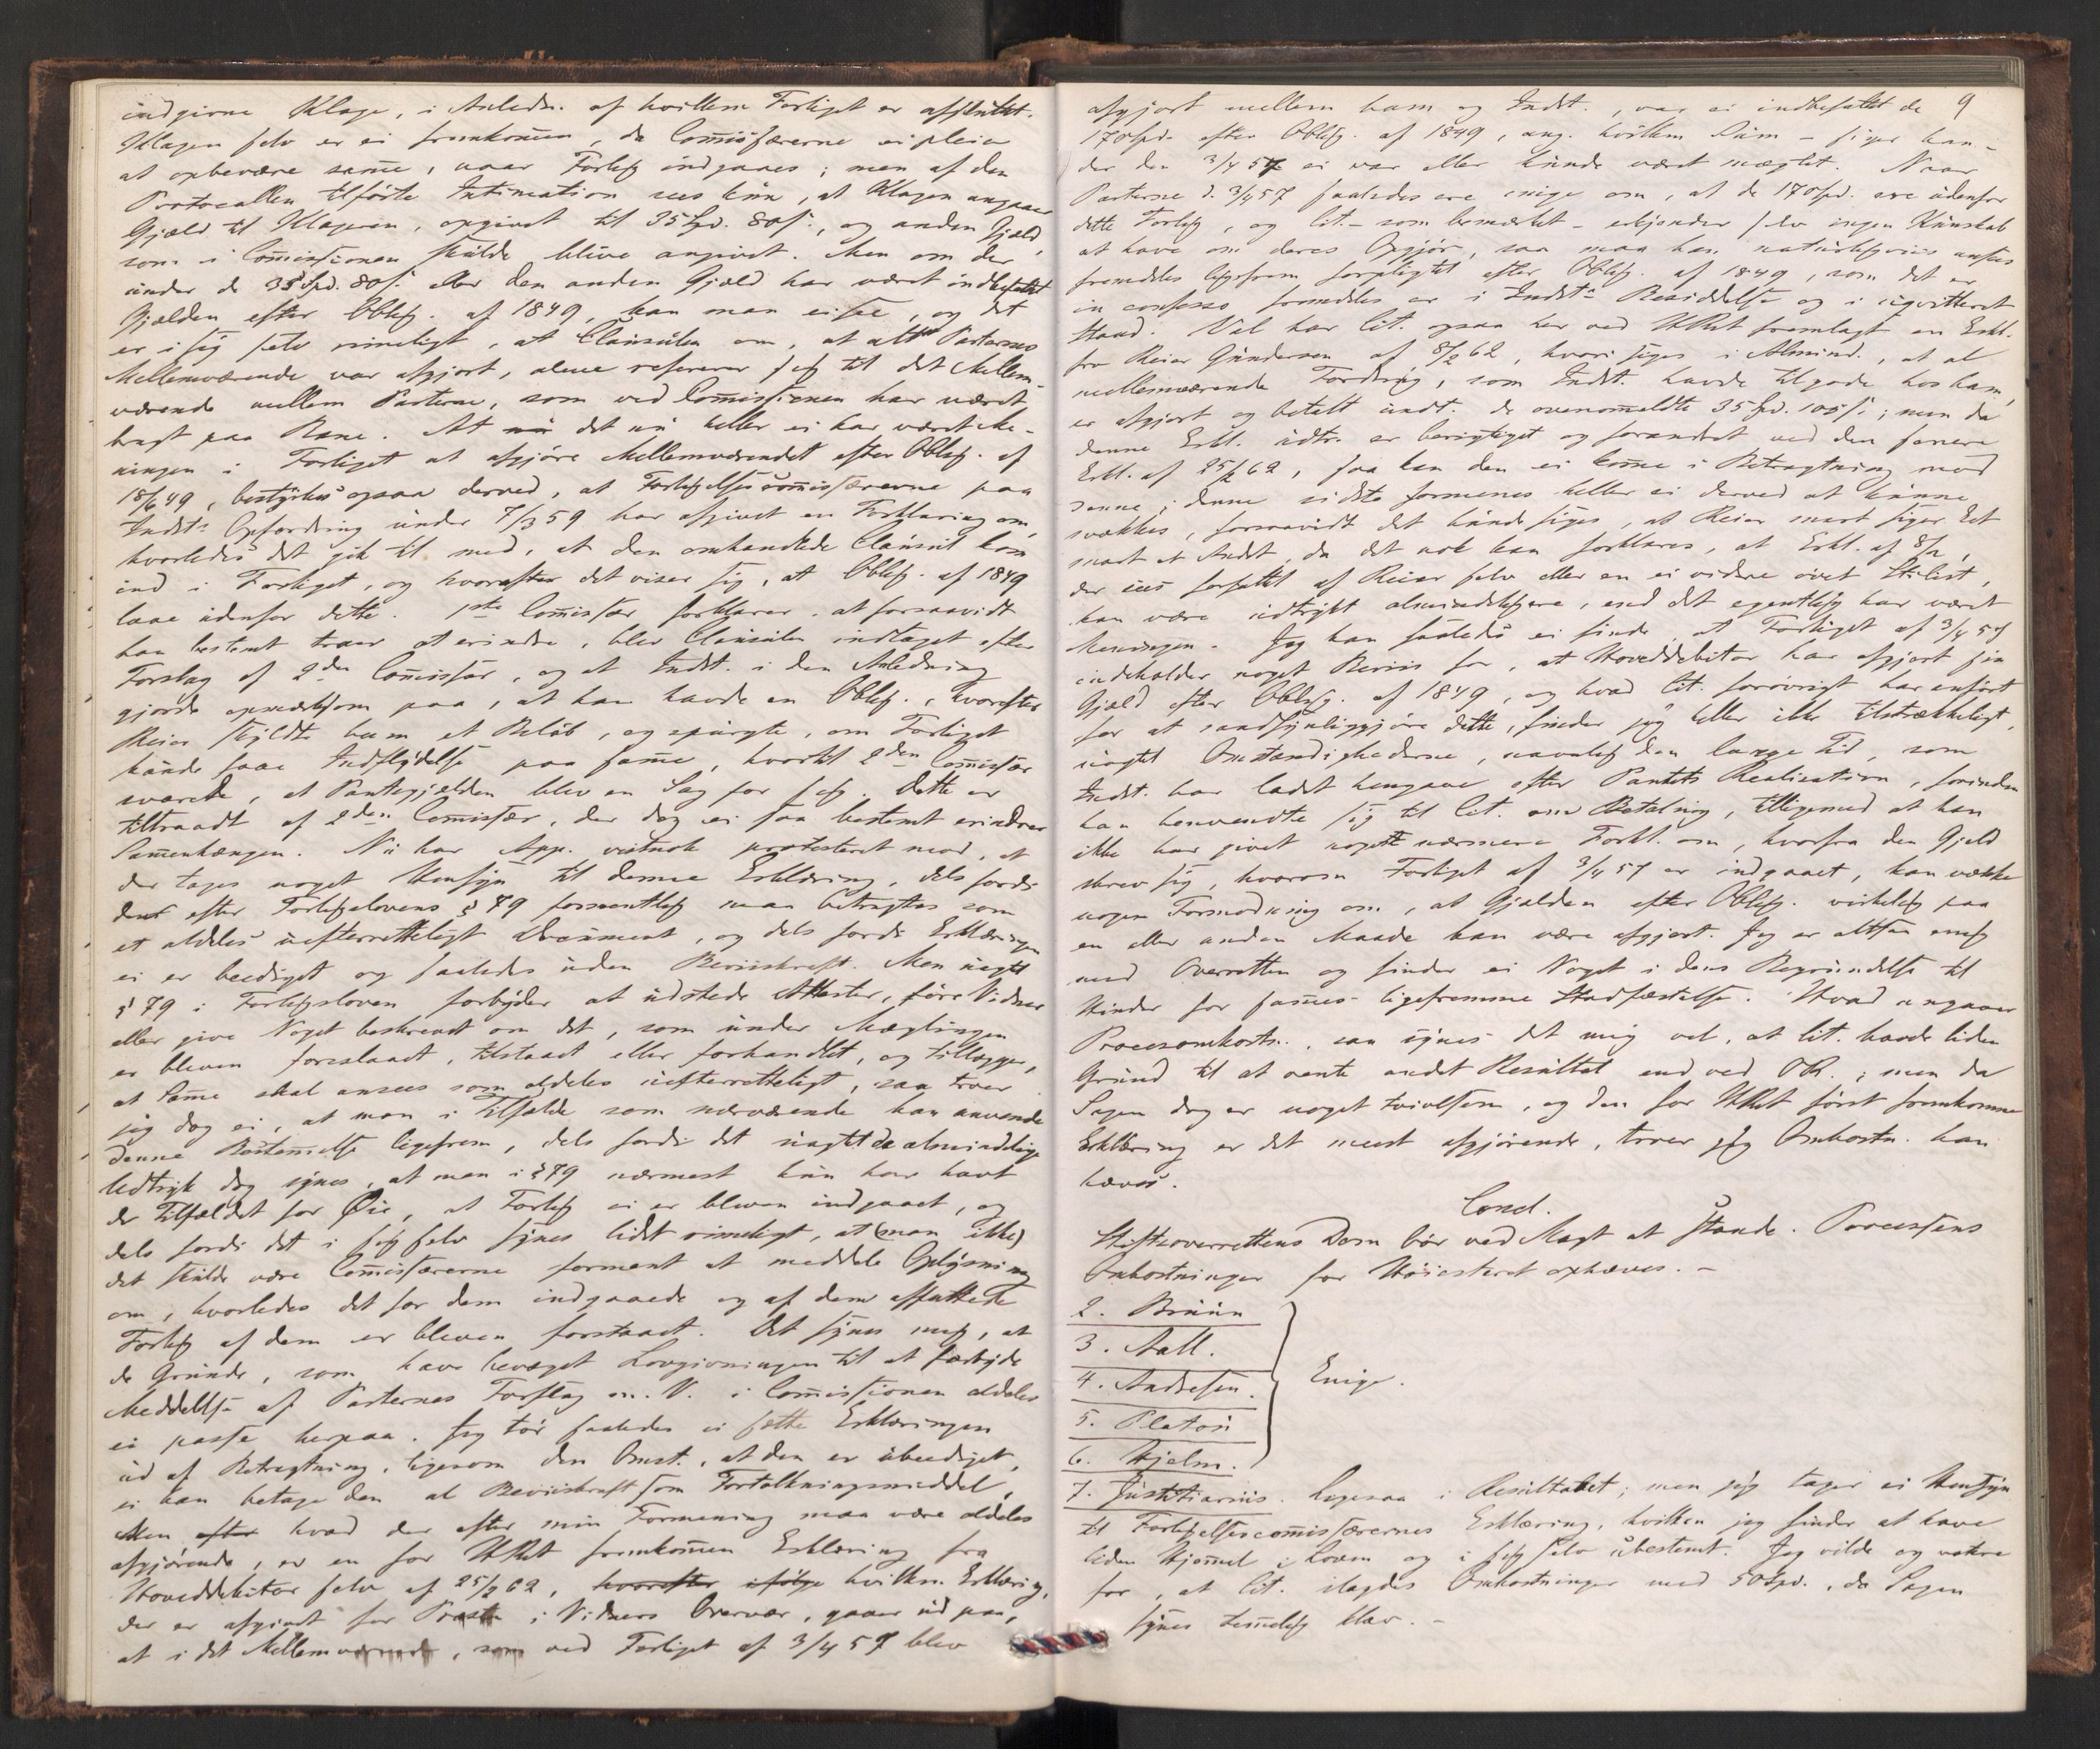 indgivne Klage, i Anledn. af hvilken Forliget er afsluttet.
Klagen selv er ei fremkommen, da Commissærerne ei pleie
at opbevare samme, naar Forlig indgaaes; men af den
Protocollen tilførte Intimation sees kun, at Klagen angaaer
Gjæld til Klageren, opgivet til 35 Spd. 80 s., og anden Gjæld,
som i Commissionen skulde blive angivet. Men om der
under de 35 Spd. 80 s. eller den anden Gjæld har været indbefattet
Gjælden efter Oblig. af 1849, kan man ei see, og det
er i sig selv rimeligt, at Clausulen om, at alt Parternes
Mellemværende var afgjort, alene refererer sig til det Mellem-
værende mellem Parterne, som ved Commissionen har været
bragt paa Bane. At det nu heller ei har været Me-
ningen i Forliget at afgjøre Mellemværendet efter Oblig. af
18/6 49, bestyrkes ogsaa derved, at Forligelsescommissærerne paa
Indst.s Opfordring under 7/3 59 har afgivet en Forklaring om,
hvorledes det gik til med, at den omhandlede Clausul kom
ind i Forliget, og hvorefter det viser sig, at Oblig. af 1849
laae udenfor dette. 1ste Commissær forklarer, at forsaavidt
han bestemt troer at erindre, blev Clausulen indtaget efter
Forslag af 2den Commissær, og at Indst. i den Anledning
gjorde opmærksom paa, at han havde en Oblig., hvorefter
Reier skyldte ham et Beløb, og spurgte, om Forliget
kunde faae Indflydelse paa samme, hvortil 2den Commissær
svarede, at Pantegjælden blev en Sag for sig. Dette er
tiltraadt af 2den Commissær, der dog ei saa bestemt erindrer
Sammenhængen. Nu har App. vistnok protesteret mod, at
der tages noget Hensyn til denne Erklæring, dels fordi
den efter Forligslovens § 79 formentlig maa betragtes som
et aldeles uefterretteligt Document, og dels fordi Erklæringen
ei er beediget og saaledes uden Beviiskraft. Men uagtet
§ 79 i Forligsloven forbyder at udstede Attester, føre Vidner
eller give Noget beskrevet om det, som under Mæglingen
er bleven foreslaaet, tilstaaet eller forhandlet, og tillægger,
at Samme skal ansees som aldeles uefterretteligt, saa troer
jeg dog ei, at man i Tilfælde som nærværende kan anvende
denne Bestemmelse ligefrem, dels fordi det uagtet de almindelige
Udtryk dog synes, at man i § 79 nærmest kun har havt
de Tilfælde for Øie, at Forlig ei er bleven indgaaet, og
dels fordi det i sig selv synes lidet rimeligt, at (man ikke)
det skulde være Commissærerne formeent at meddele Oplysning
om, hvorledes det for dem indgaaede og af dem affattede
Forlig af dem er bleven forstaaet. Det synes mig, at
de Grunde, som have bevæget Lovgivningen til at forbyde
Meddelelse af Parternes Forslag m. V. i Commissionen aldeles
ei passe herpaa. Jeg tør saaledes ei sætte Erklæringen
ud af Betragtning, ligesom den Omst., at den er ubeediget,
ei kan betage den al Beviiskraft som Fortolkningsmiddel.
Men, efter hvad der efter min Formening maa være aldeles
afgjørende, er en for HRet fremkommen Erklæring fra
Hoveddebitor selv af 25/2 62, hvorefter ifølge hvilken Erklæring,
der er afgivet for Præsten i Vidners Overvær, gaaer ud paa,
at i det Mellemværende, som ved Forliget af 3/4 57 blev
9
afgjort mellem ham og Indst., var ei indbefattet de
170 Spd. efter Oblig. af 1849, ang. hvilken Sum - siger han -
der den 3/4 57 ei var eller kunde været mæglet. Naar
Parterne d. 3/4 57 saaledes ere enige om, at de 170 Spd. ere udenfor
dette Forlig, og Cit. - som bemærket - erkjender selv ingen Kundskab
at have om deres Opgjør, saa maa han naturligviis ansees
fremdeles ligefrem forpligtet efter Oblig. af 1849, som det er
in confesso fremdeles er i Indst.s Besiddelse og i uqvitteret
Stand. Vel har Cit. ogsaa her ved HRet fremlagt en Erkl.
fra Reier Gundersen af 8/2 62, hvori siges i Almind., at al
mellemværende Fordring, som Indst. havde tilgode hos ham,
er afgjort og betalt undt. de ovenomeldte 35 Spd. 100 s.; men da
denne Erkl. udtr. er berigtiget og forandret ved den senere
Erkl. af 25/2 62, saa kan den ei komme i Betragtning mod
denne; denne sidste formenes heller ei derved at kunne
svækkes, forsaavidt det kunde siges, at Reier snart siger Eet
snart et Andet, da det nok kan forklares, at Erkl. af 8/2,
der sees forfattet af Reier selv eller en ei videre øvet Stilist,
kan være udtrykt almindeligere, end det egentlig har været
Meningen. Jeg kan saaledes ei finde, at Forliget af 3/4 57
indeholder noget Beviis for, at Hoveddebitor har afgjort sin
Gjæld efter Oblig. af 1849, og hvad Cit. forøvrigt har anført
for at sandsynliggjøre dette, finder jeg heller ikke tilstrækkeligt,
uagtet Omstændighederne, navnlig den lange Tid, som
Indst. har ladet hengaae efter Pantets Realisation, forinden
han henvendte sig til Cit. om Betaling, tilligemed at han
ikke har givet noget nærmere Forkl. om, hvorfra den Gjæld
skrev sig, hvorom Forliget af 3/4 57 er indgaaet, kan vække
nogen Formodning om, at Gjælden efter Oblig. virkelig paa
en eller anden Maade kan være afgjort. Jeg er altsaa enig
med Overretten og finder ei Noget i dens Begrundelse til
Hinder for sammes ligefremme Stadfæstelse. Hvad angaaer
Procesomkostn., saa synes det mig vel, at Cit. havde liden
Grund til at vente andet Resultat end ved OR.; men da
Sagen dog er noget tvivlsom, og den for HRet først fremkomne
Erklæring er det meest afgjørende, troer jeg Omkostn. kan
hæves.
Concl.
Stiftsoverrettens Dom bør ved Magt at stande. Processens
Omkostninger for Høiesteret ophæves. -
2. Bruun
3. Aall.
4. Andresen.
5. Platou
6. Hjelm.
Enige.
7. Justitiarius. Ligesaa i Resultatet; men jeg tager ei Hensyn
til Forligelsescommissærernes Erklæring, hvilken jeg finder at have
liden Hjemmel i Loven og i sig selv ubestemt. Jeg vilde og votere
for, at Cit. ilagdes Omkostninger med 50 Spd., da Sagen
synes temmelig klar. -